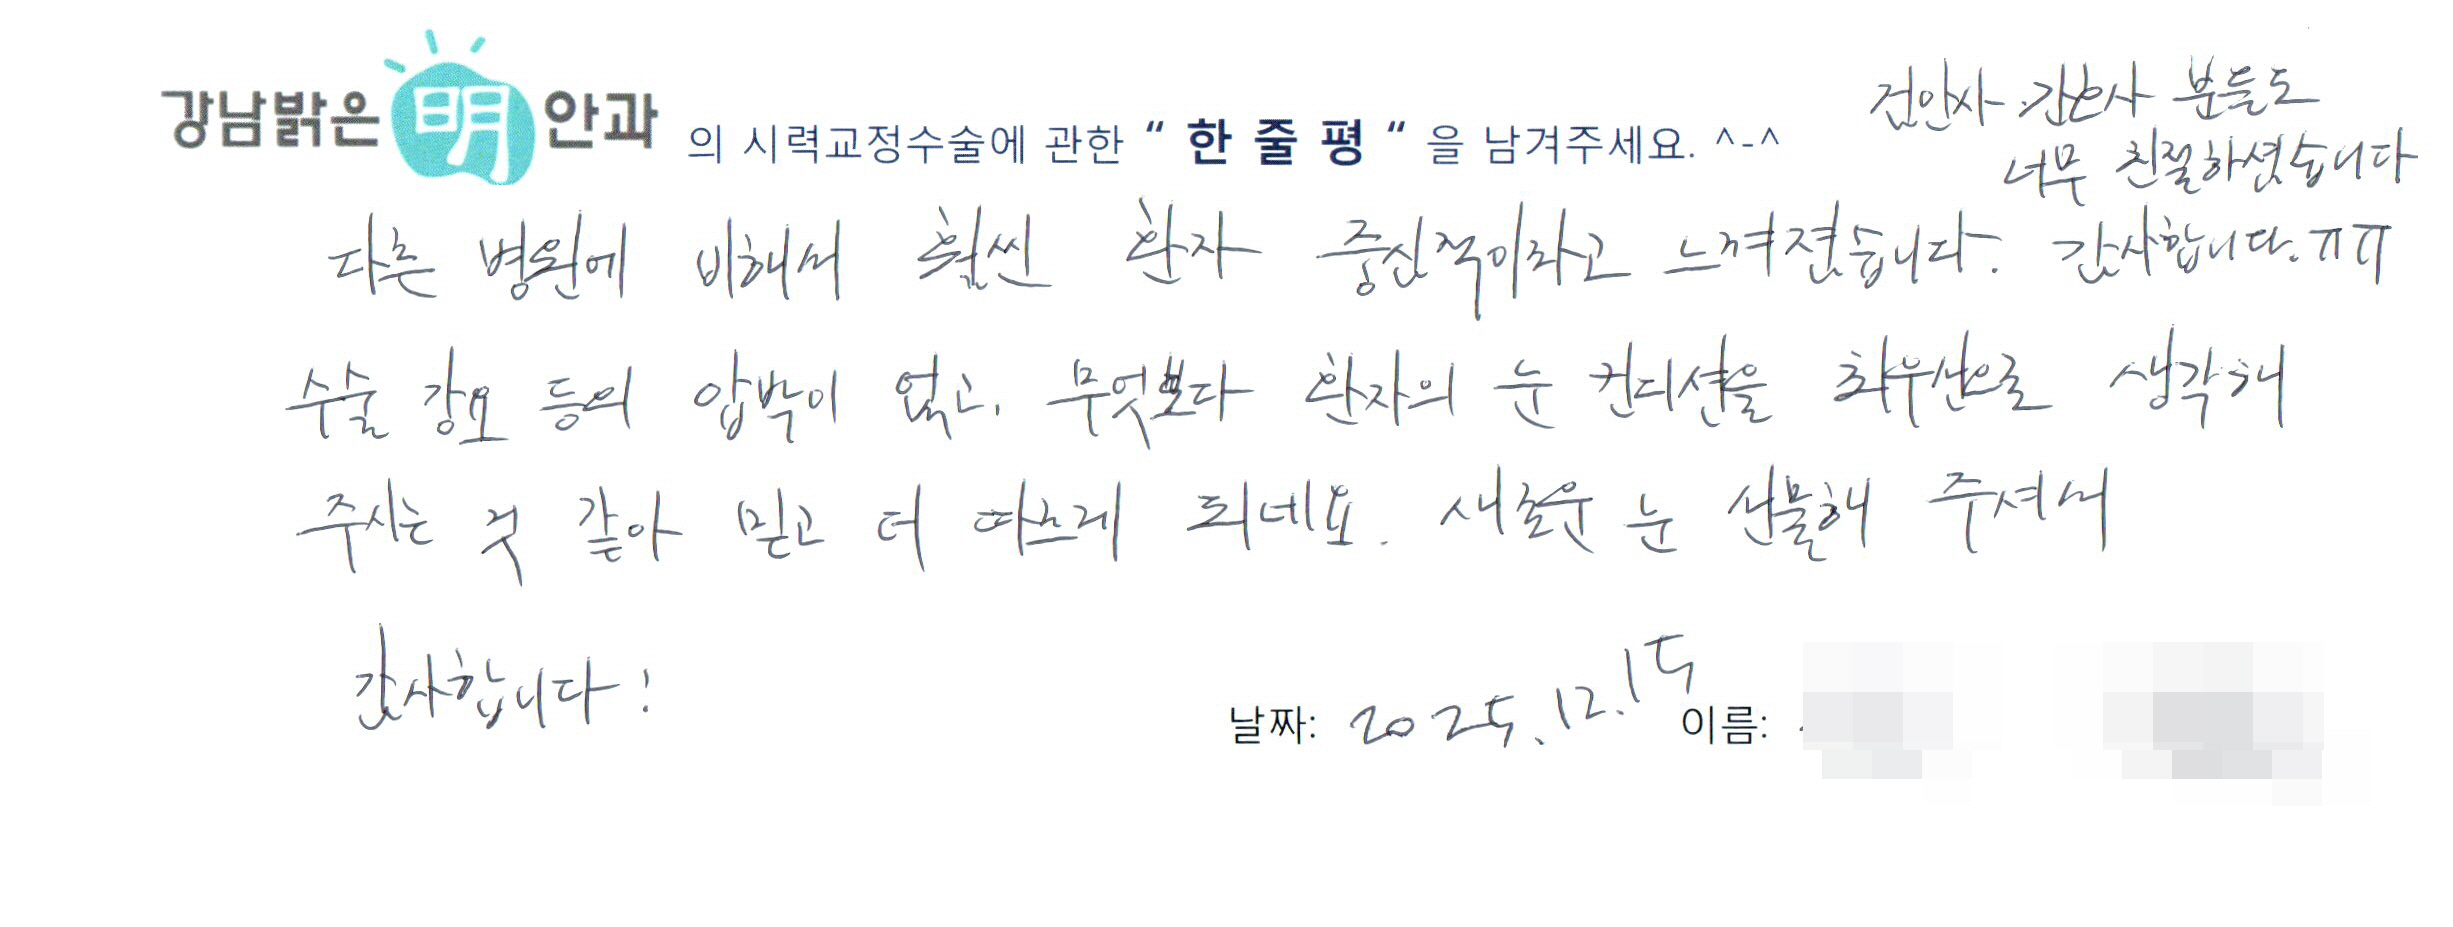 강남밝은明안과 의 시력교정수술에 관한 " 한 줄 평 " 을 남겨주세요. ^-^
검안사·간호사 분들도
너무 친절하셨습니다
다른 병원에 비해서 훨씬 환자 중심적이라고 느껴졌습니다. 감사합니다.ㅠㅠ
수술 강요 등의 압박이 없고, 무엇보다 환자의 눈 컨디션을 최우선으로 생각해
주시는 것 같아 믿고 더 따르게 되네요. 새로운 눈 선물해 주셔서
감사합니다!
날짜: 2025.12.15 이름: